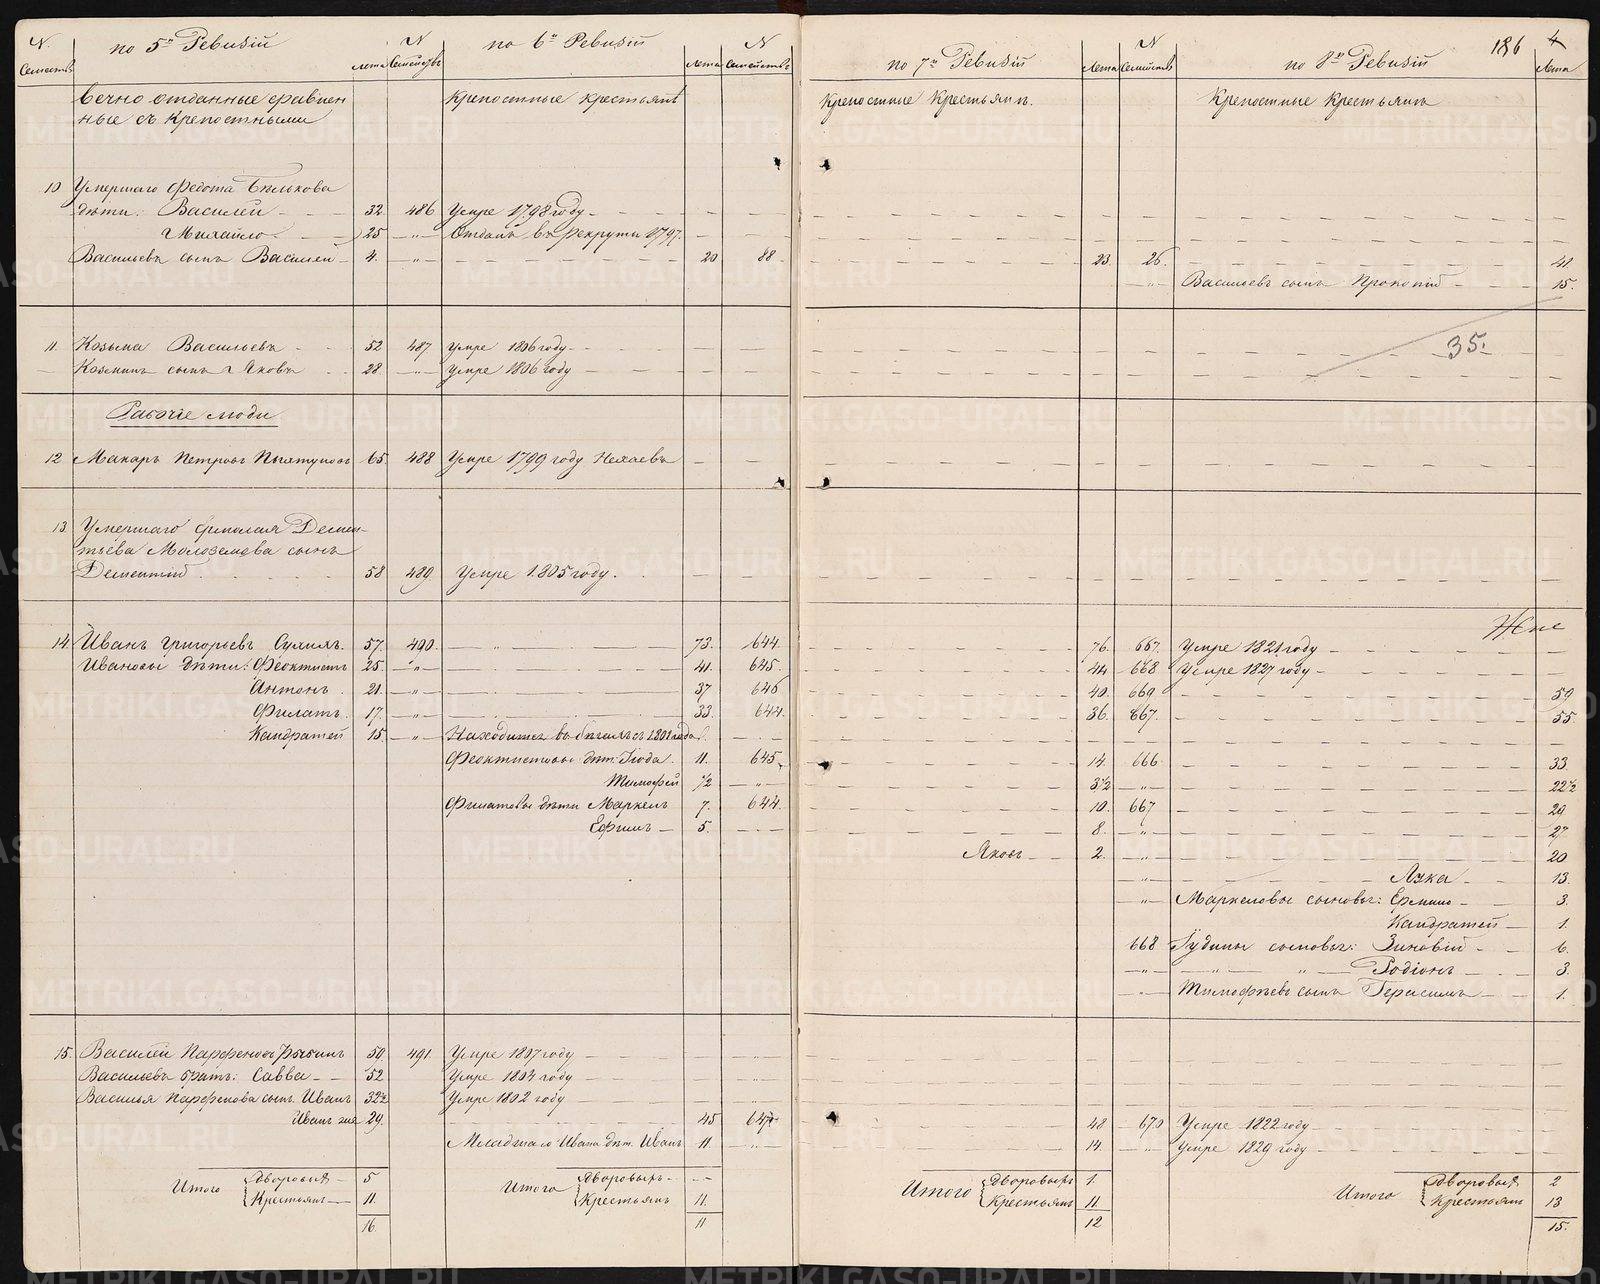 186 4
N. Семействъ по 5й Ревизіи лета N семействъ по 6й Ревизіи лета N семействъ по 7й Ревизіи лета N семействъ по 8й Ревизіи лета
вечно отданные сравнен Крепостные крестьянѣ Крепостные Крестьянѣ. Крепостные Крестьянѣ
ные съ Крепостными
10 Умершаго Федота Бѣлькова
дѣти: Василей 32. 486 Умре 1798 году
Михайло 25 — " — Отданъ въ рекруты 1797.
Васильевъ сынъ Василей 4. — " — 20 88 23. 26. 41.
— " — Васильевъ сынъ Прокопій 15.
11. Козьма Васильевъ 52 487 Умре 1806 году 35.
Козминъ сынъ Яковъ 28. — " — Умре 1806 году
Рабочіе люди
12 Макаръ Петровъ 65. 488 Умре 1799 году
13. Умершаго Демен-
тьева Молоземова сынъ
Дементій 58 489. Умре 1805 году.
Жне
14. Иванъ Григорьевъ 57. 490. — " — 73. 644. 76. 667. Умре 1821 году
Ивановы дѣти: Феоктистъ 25. — " — 41. 645. 44 668 Умре 1827 году
Антонъ 21. — " — 37 646 40. 669 59
Филатъ. 17. — " — 33. 644. 36. 667. 55
Кандратей 15. — " — Находится въ бѣгахъ съ 1801 года
Феоктистовы дѣт. Гюда. 11. 645. 14. 666 33.
Тимофей 1/2 — " — 3 1/2 — " — 22 1/2
Филатовы дѣти Маркелъ 7. 644. 10. 667 29
Ефимъ 5. 8. — " — 27
Яковъ 2. — " — 20
— " — Лука 13.
— " — Маркеловы сыновья: Ермило 3.
Кандратей 1.
668 Гудины сыновья: Зиновій 6.
— " — " — Родіонъ 3.
Тимофѣевъ сынъ Герасимъ 1.
15. Василей Парфеновъ 50. 491. Умре 1807 году
Васильевъ братъ: Савва 52 Умре 1804 году
Василья Парфенова сынъ Иванъ Умре 1802 году
Иванъ же 29. 45 647 48 670 Умре 1822 году
Младшаго Ивана дѣт. Иванъ 11 14. — " — Умре 1829 году
Итого Дворовыя 5 Итого Дворовыхъ -- Итого Дворовыхъ 1. Итого Дворовыя 2
Крестьянъ 11. Крестьянъ 11. Крестьянъ 11. Крестьянъ 13
16. 11 12 15.
METRIKI.GASO-URAL.RU